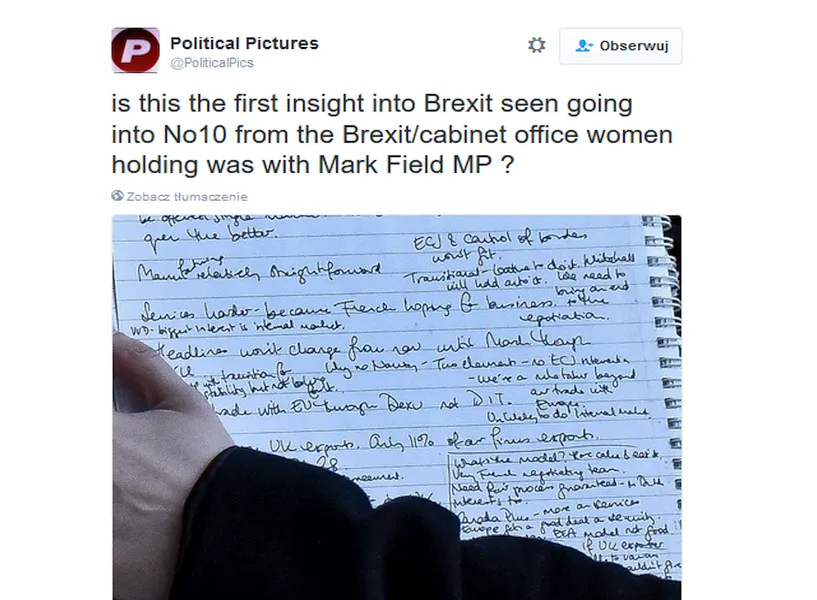 Political Pictures
@PoliticalPics
Obserwuj
is this the first insight into Brexit seen going
into No10 from the Brexit/cabinet office women
holding was with Mark Field MP ?
Zobacz tłumaczenie
be offered single
over the better.
ECJ & Control of borders
won't fit.
Manufacturing relatively straightforward
Transitional - loathe to do it. Whitehall
will hold onto it. We need to
bring an end
Services harder - because French hoping for business. to the
negotiation.
WD - biggest interest is internal market.
Headlines won't change from now until March though
with transition for Why no Norway - Two elements - no ECJ intervention
stability but not before
- we're a rule taker beyond
trade with EU through Dexu not DIT. our trade with
Europe
Unlikely to do internal market
UK exports. Only 11% of our firms exports.
28
What's the model? Have cake & eat it.
Very French negotiating team.
Need fair process guaranteed - to Dutch
interests too.
Canada Plus - more on services
Europe gets a good deal on security.
EEA model not good
if UK exporter